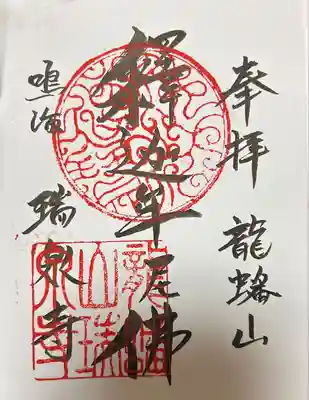 奉拝 龍蟠山
釋迦牟尼佛
鳴海 瑞泉寺
龍蟠山瑞泉寺